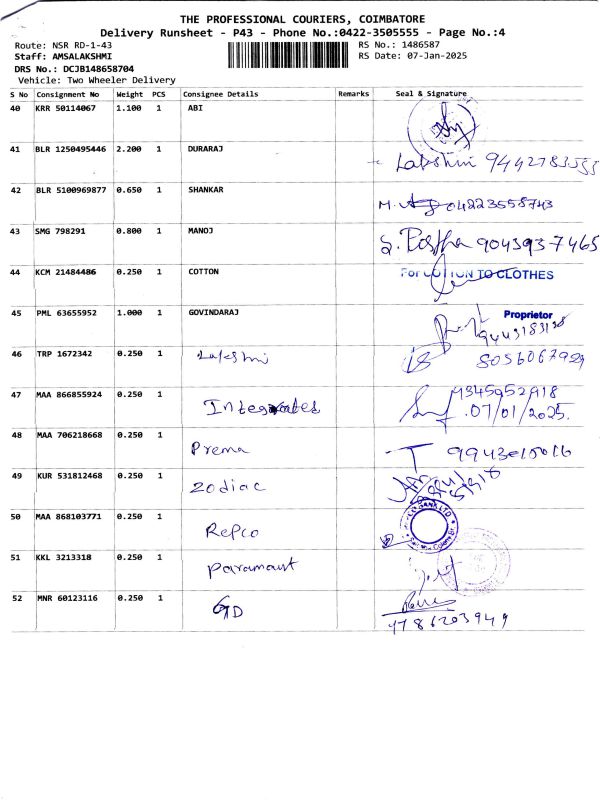 THE PROFESSIONAL COURIERS, COIMBATORE
Delivery Runsheet - P43 - Phone No.:0422-3505555 - Page No.:4
Route: NSR RD-1-43 RS No.: 1486587
Staff: AMSALAKSHMI RS Date: 07-Jan-2025
DRS No.: DCJB148658704
Vehicle: Two Wheeler Delivery
S No Consignment No Weight PCS Consignee Details Remarks Seal & Signature
40 KRR 50114067 1.100 1 ABI
41 BLR 1250495446 2.200 1 DURARAJ Lakshmi 9442783555
42 BLR 5100969877 0.650 1 SHANKAR M. 04223558743
43 SMG 798291 0.800 1 MANOJ 9043937465
44 KCM 21484486 0.250 1 COTTON For COTTON TO CLOTHES
Proprietor
45 PML 63655952 1.000 1 GOVINDARAJ
46 TRP 1672342 0.250 1 Lakshmi 8056067929
47 MAA 866855924 0.250 1 Integrates 9345952918
07/01/2025.
48 MAA 706218668 0.250 1 Prema
49 KUR 531812468 0.250 1 Zodiac
50 MAA 868103771 0.250 1 Repco
51 KKL 3213318 0.250 1 Paramount
52 MNR 60123116 0.250 1 GD
9786203949